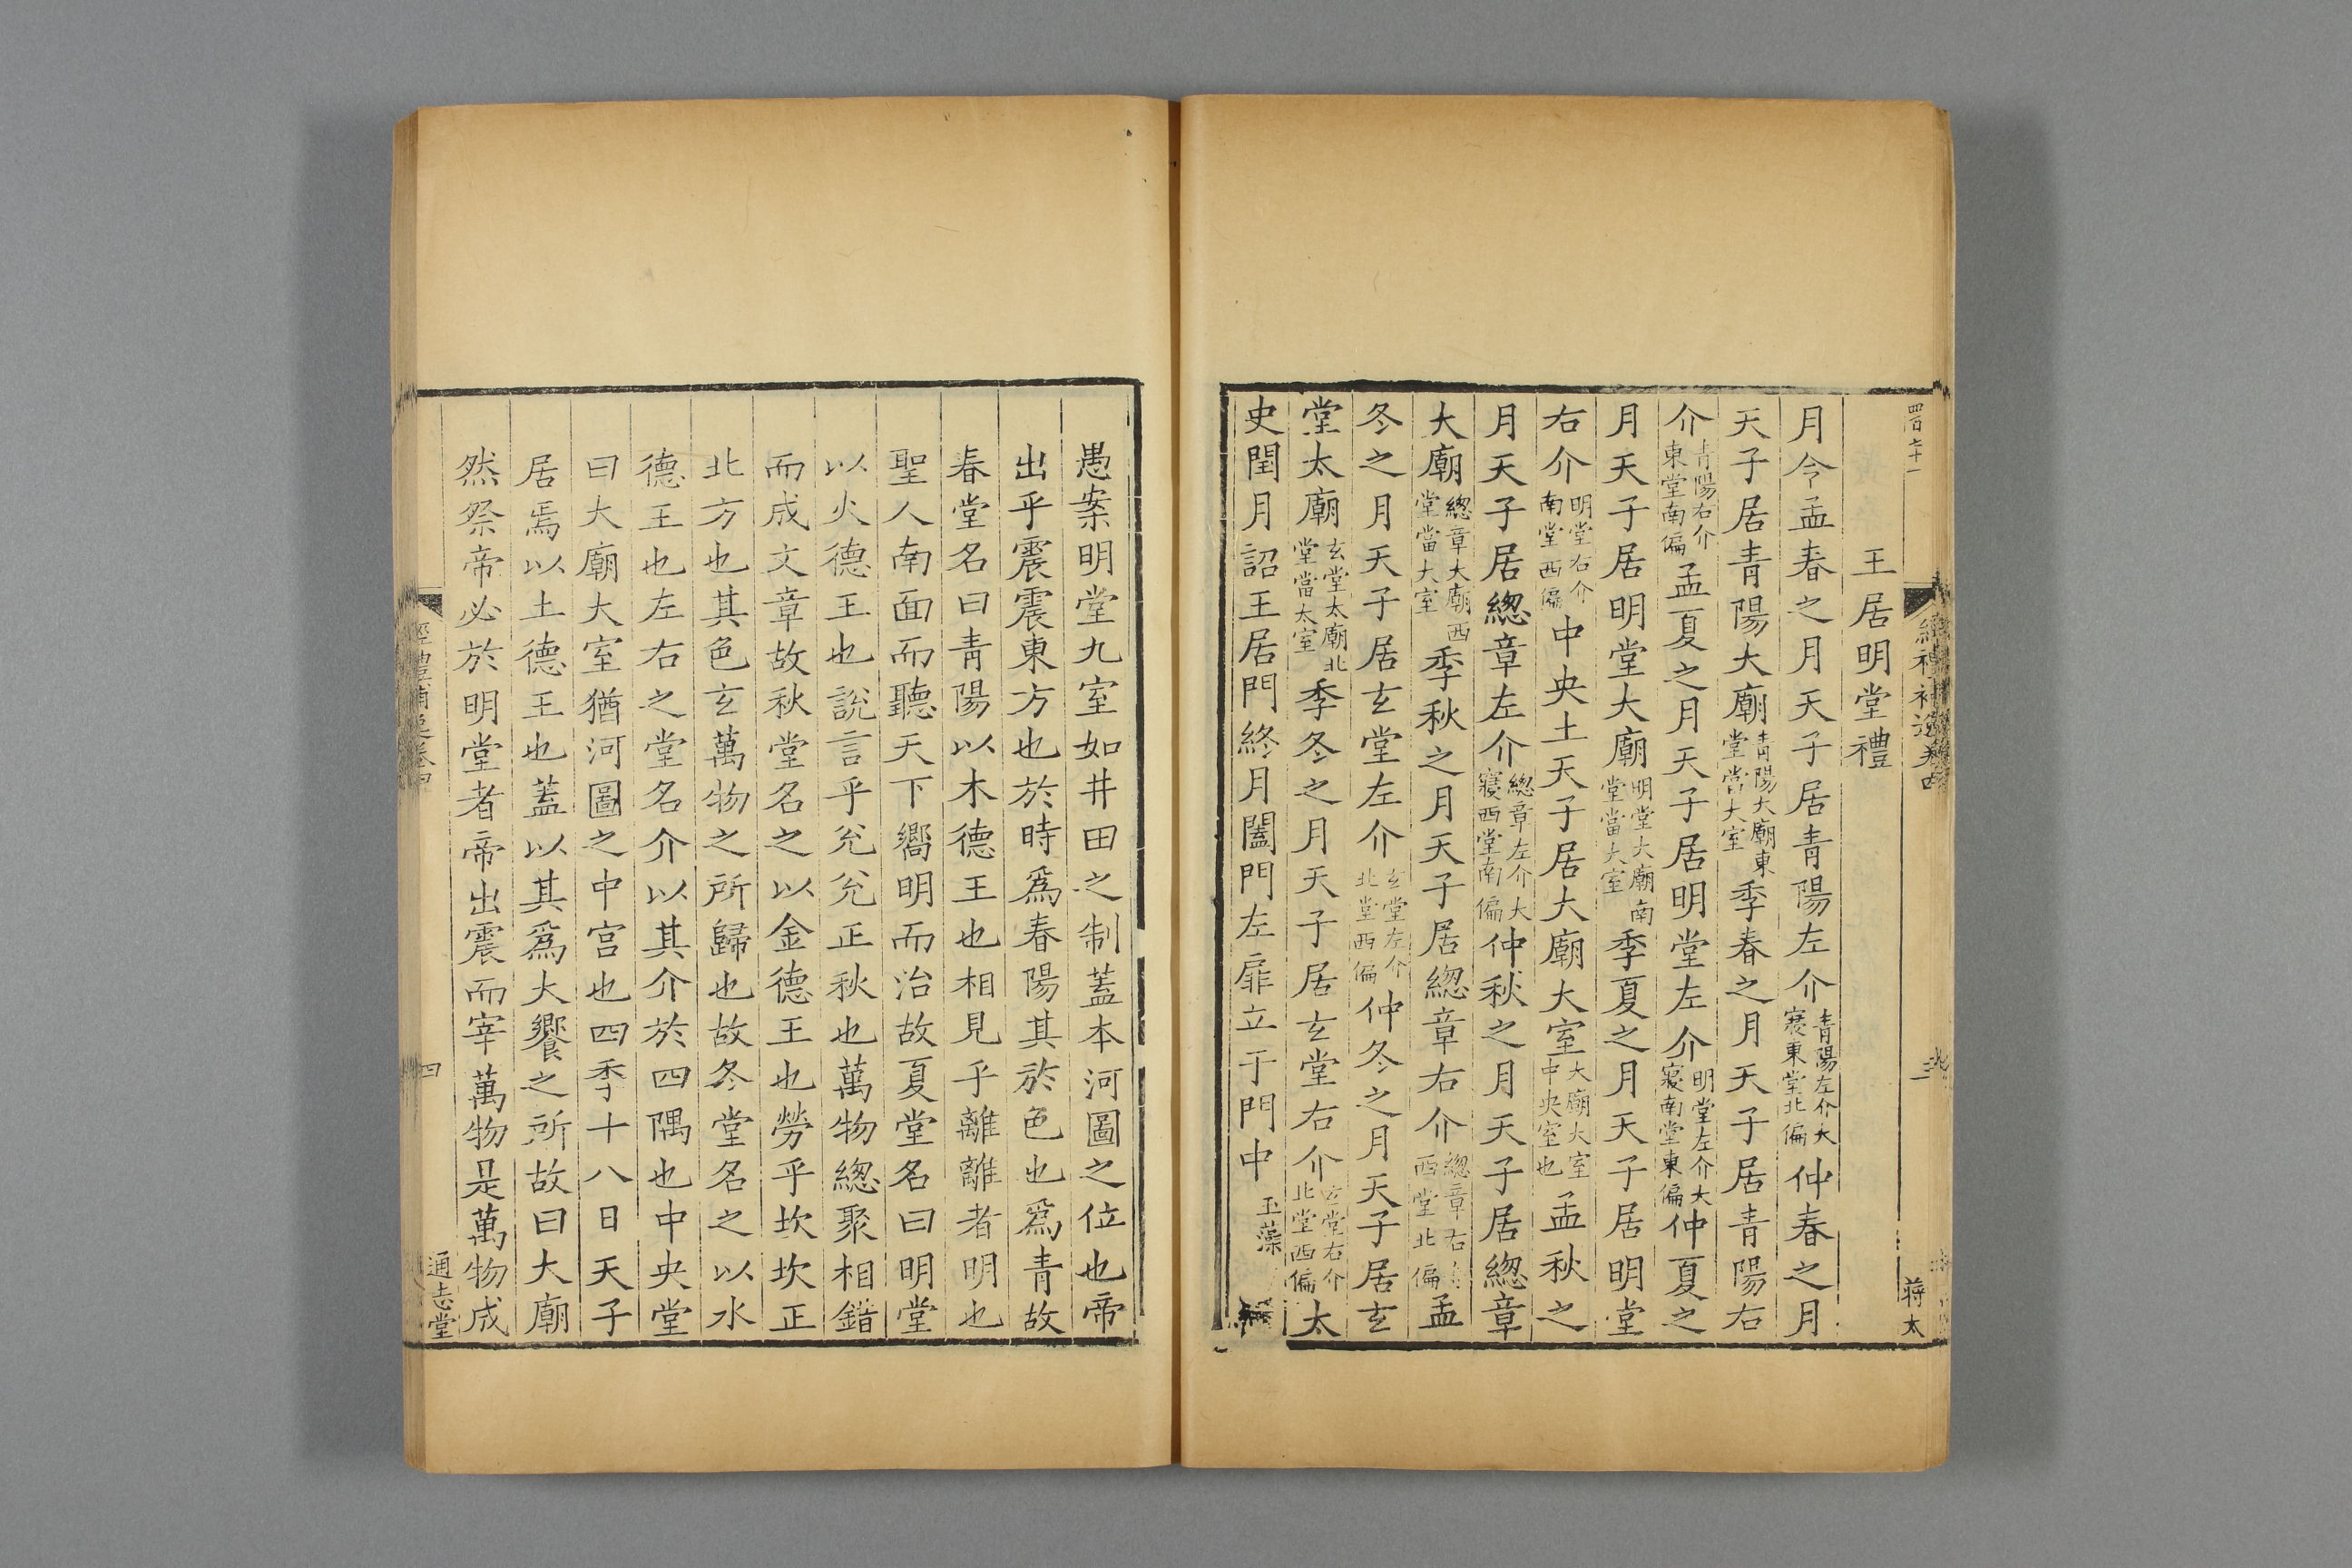 四百七十一
蔣太
王居明堂禮
月令孟春之月天子居青陽左介青陽左介大寢東堂北偏仲春之月
天子居青陽大廟青陽大廟東堂當大室季春之月天子居青陽右
介青陽右介東堂南偏孟夏之月天子居明堂左介明堂左介大寢南堂東偏仲夏之
月天子居明堂大廟明堂大廟南堂當大室季夏之月天子居明堂
右介明堂右介南堂西偏中央土天子居大廟大室大廟大室中央室也孟秋之
月天子居總章左介總章左介大寢西堂南偏仲秋之月天子居總章
大廟總章大廟西堂當大室季秋之月天子居總章右介總章右介西堂北偏孟
冬之月天子居玄堂左介玄堂左介北堂西偏仲冬之月天子居玄
堂太廟玄堂太廟北堂當太室季冬之月天子居玄堂右介玄堂右介北堂西偏太
史閏月詔王居門終月闔門左扉立于門中玉藻
愚案明堂九室如井田之制蓋本河圖之位也帝
出乎震震東方也於時爲春陽其於色也爲青故
春堂名曰青陽以木德王也相見乎離離者明也
聖人南面而聽天下嚮明而治故夏堂名曰明堂
以火德王也說言乎兊兊正秋也萬物總聚相錯
而成文章故秋堂名之以金德王也勞乎坎坎正
北方也其色玄萬物之所歸也故冬堂名之以水
德王也左右之堂名介以其介於四隅也中央堂
曰大廟大室猶河圖之中宫也四季十八日天子
居焉以土德王也蓋以其爲大饗之所故曰大廟
然祭帝必於明堂者帝出震而宰萬物是萬物成
四
通志堂